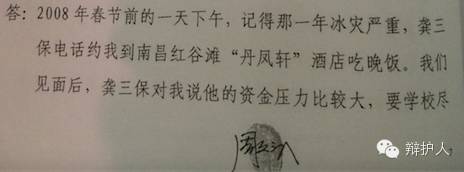 答：2008年春节前的一天下午，记得那一年冰灾严重，龚三
保电话约我到南昌红谷滩“丹凤轩”酒店吃晚饭。我们
见面后，龚三保对我说他的资金压力比较大，要学校尽
辩护人